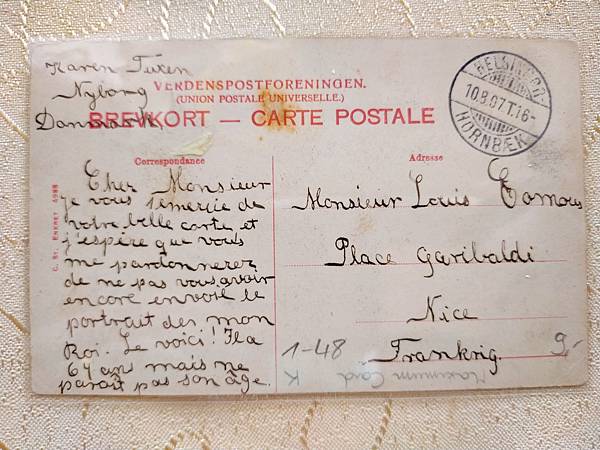 Karen Tuxen
Nyborg
Danmark
VERDENSPOSTFORENINGEN.
(UNION POSTALE UNIVERSELLE.)
BREVKORT — CARTE POSTALE
HELSINGØR
10.8.07.T.16-
HORNBÆK
Correspondance
Cher Monsieur
je vous remercie de
votre belle carte et
j'espère que vous
me pardonnerez
de ne pas vous avoir
encore envoié le
portrait de mon
Roi. Le voici! Il a
64 ans mais ne
paraît pas son âge.
Adresse
Monsieur Louis
Place Garibaldi
Nice
Frankrig.
1-48
9,-
Maximum Card
K